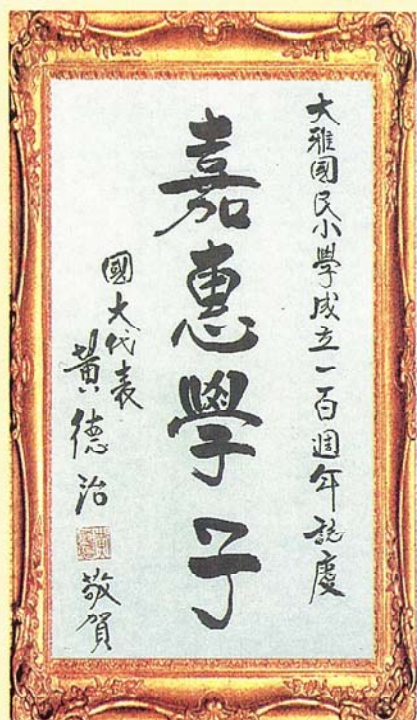 大雅國民小學成立一百週年誌慶
嘉惠學子
國大代表
黃德治
敬賀